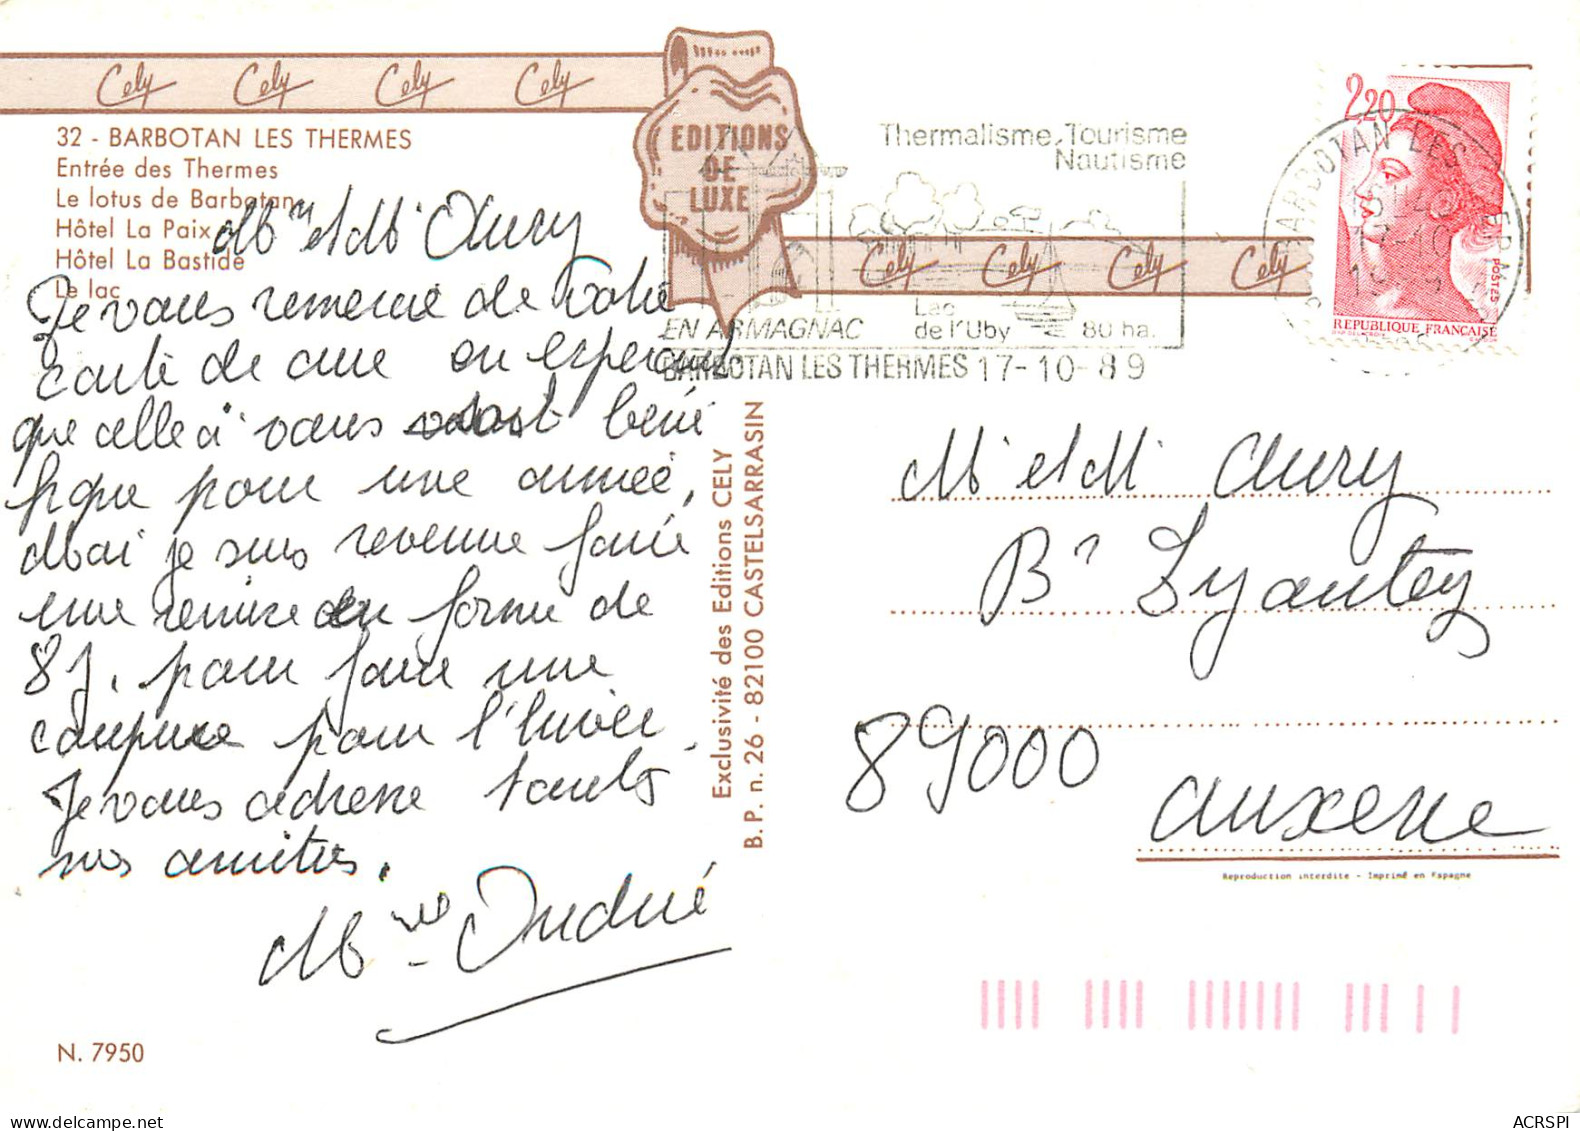 Cely Cely Cely Cely
32 - BARBOTAN LES THERMES
Entrée des Thermes
Le lotus de Barbotan
Hôtel La Paix
Hôtel La Bastide
Le lac
EDITIONS
DE
LUXE
Cely Cely Cely Cely
Thermalisme, Tourisme
Nautisme
EN ARMAGNAC
Lac
de l'Uby
80 ha.
BARBOTAN LES THERMES 17-10-89
BARBOTAN LES THERM
2,20
POSTES
REPUBLIQUE FRANÇAISE
Mme et Mr Aury
Je vous remercie de votre
carte de cure en esperant
que celle à vous soit béné
fique pour une année,
Moi je suis revenue faire
une remise en forme de
8 j. pour faire une
coupure pour l'hiver.
Je vous adresse toutes
mes amitiés.
Mlle
Exclusivité des Editions CELY
B.P. n. 26 - 82100 CASTELSARRASIN
Mr et Mme Aury
Bd Lyautey
89000
Auxerre
Reproduction interdite - Imprimé en Espagne
N. 7950
ACRSPI